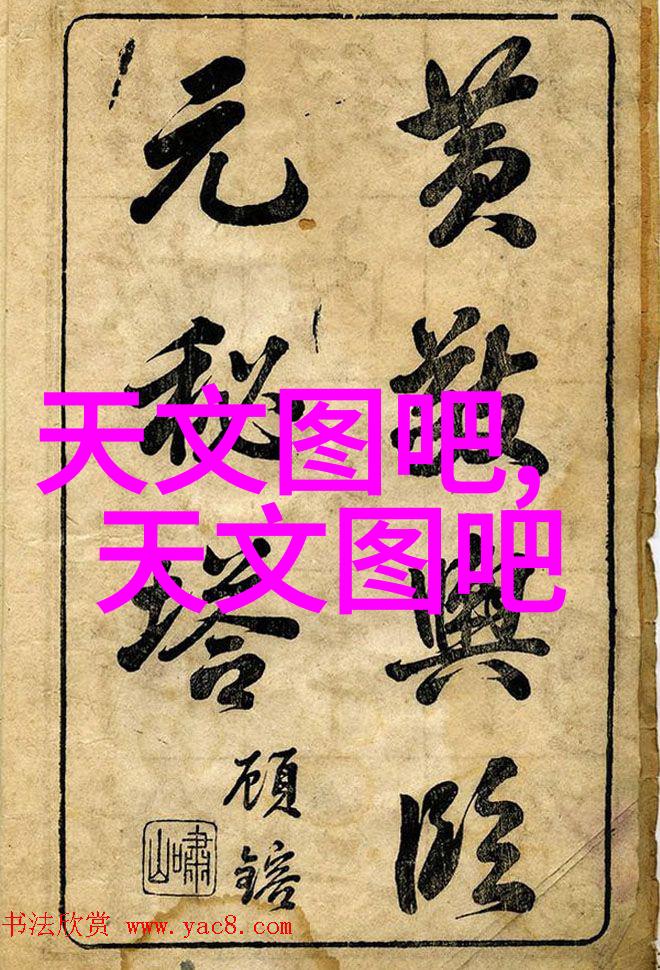 黄敬輿临
元秘塔
顾鎔
嘯山
天文图吧,
天文图吧
书法欣赏 www.yac8.com